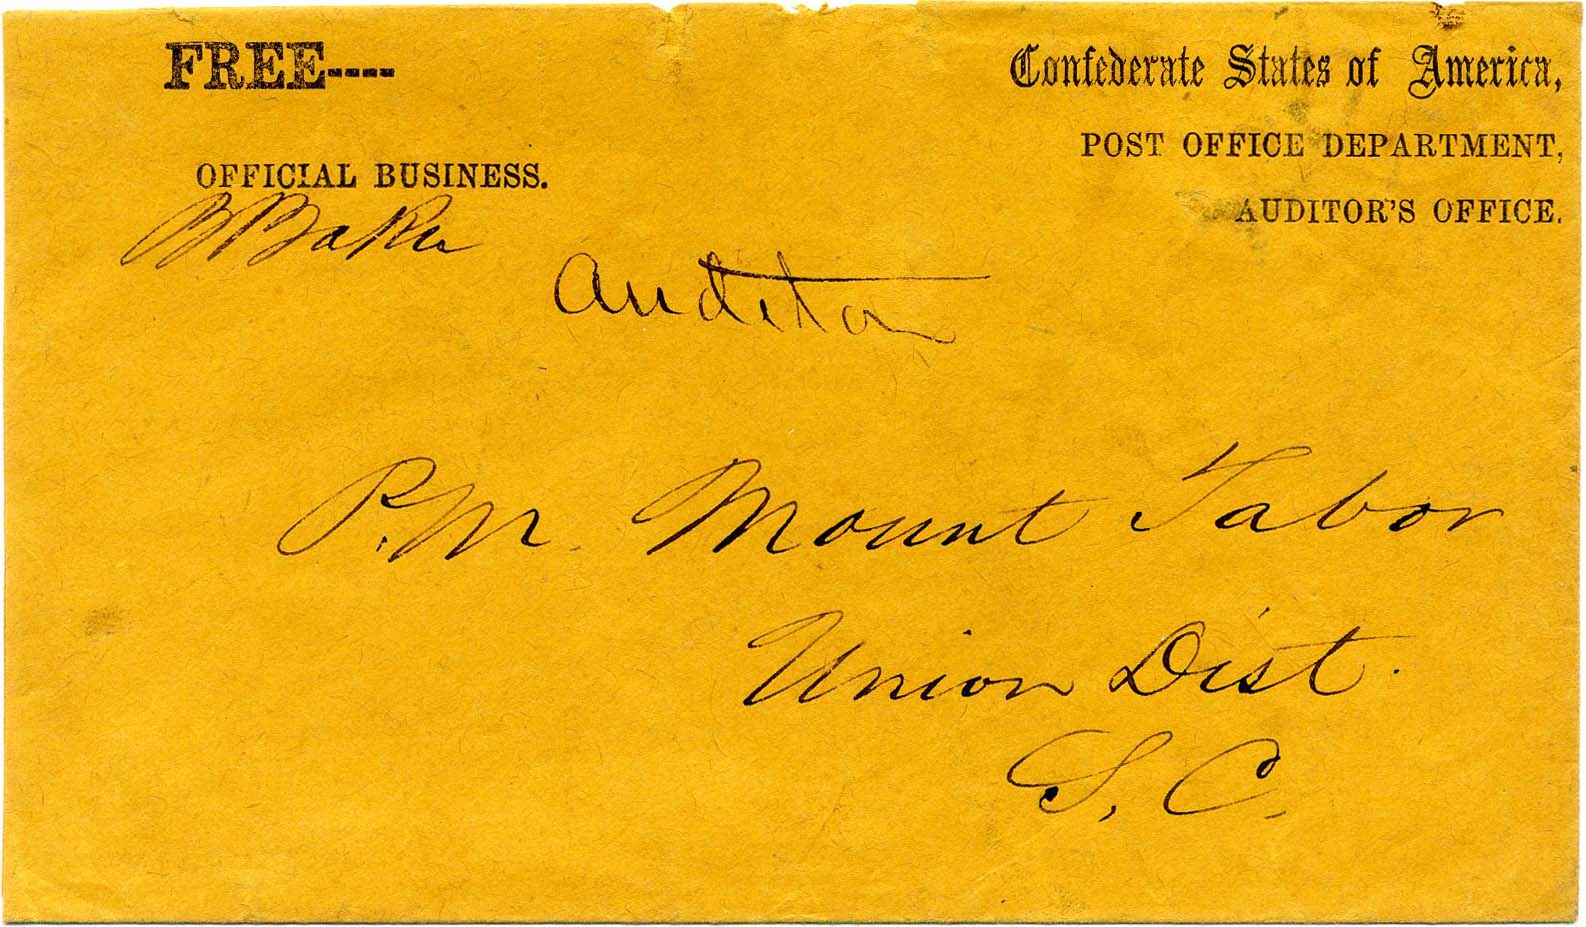 FREE----
Confederate States of America,
POST OFFICE DEPARTMENT,
OFFICIAL BUSINESS.
AUDITOR'S OFFICE.
B Baker
Auditor
P.M. Mount Tabor
Union Dist.
S. C.